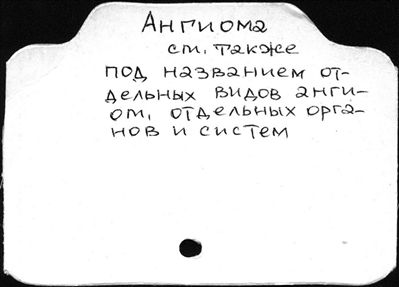 Ангиома
см. также
под названием от-
дельных видов анги-
ом, отдельных орга-
нов и систем